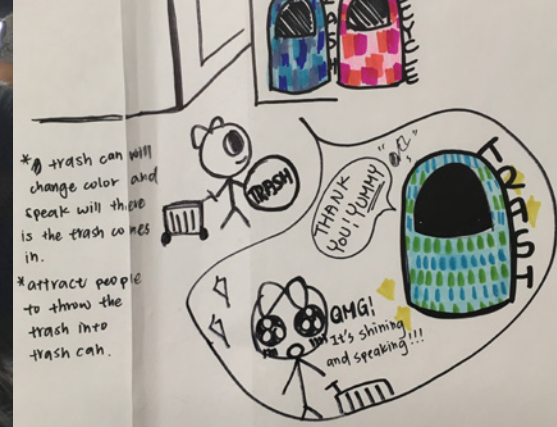 TRASH
RECYCLE
* A trash can will
change color and
speak will there
is the trash comes
in.
* attract people
to throw the
trash into
trash can.
TRASH
THANK
YOU! YUMMY
TRASH
OMG!
It's shining
and speaking!!!